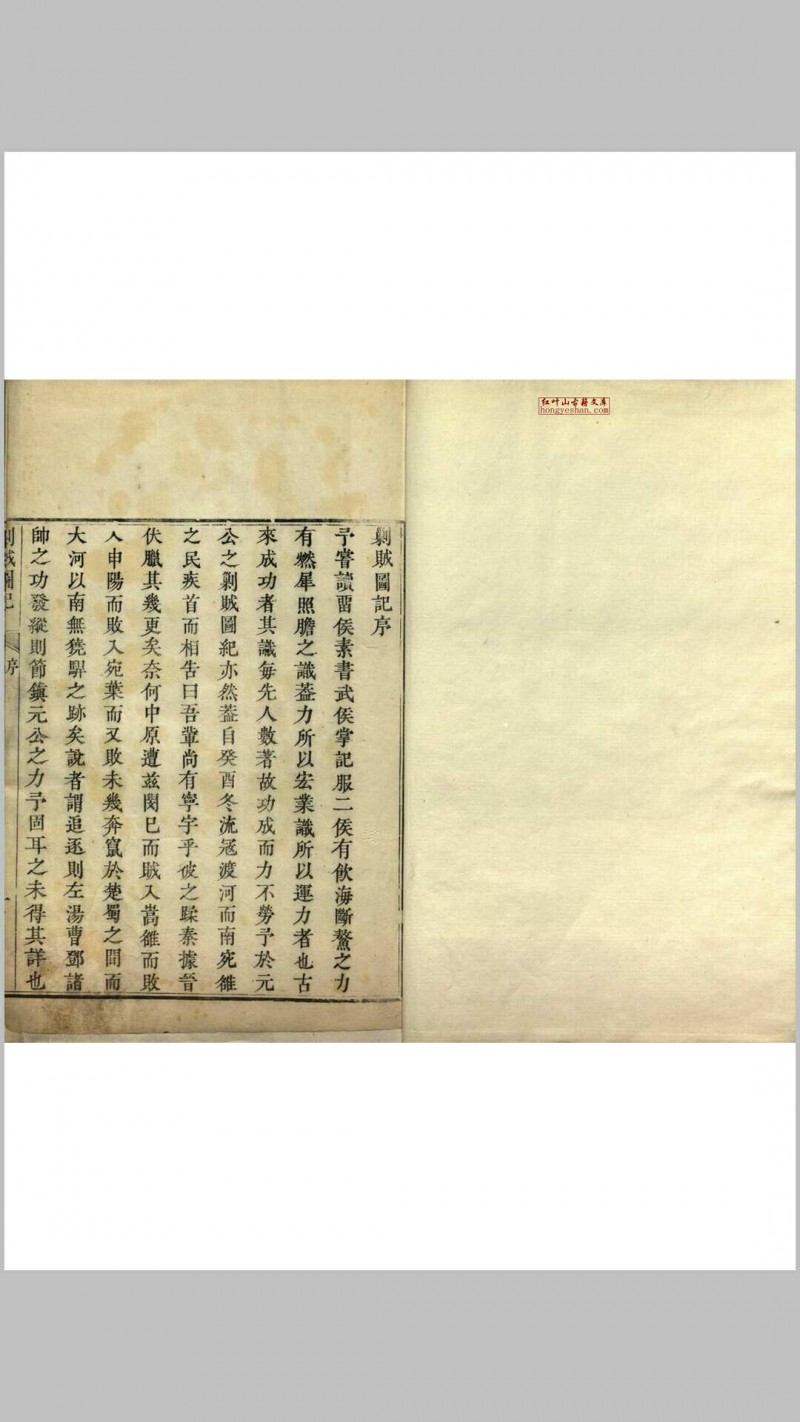 红叶山古籍文库
hongyeshan.com
剿賊圖記序
予嘗讀畱侯素書武侯掌記服二侯有飲海斷鰲之力
有燃犀照膽之識葢力所以宏業識所以運力者也古
來成功者其識每先人數著故功成而力不勞予於元
公之剿賊圖紀亦然葢自癸酉冬流寇渡河而南宛雒
之民疾首而相告曰吾輩尚有寧宇乎彼之蹂秦據晉
伏臘其幾更矣奈何中原遭兹閔已而賊入嵩雒而敗
入申陽而敗入宛葉而又敗未幾奔竄於楚蜀之間而
大河以南無㹱騂之跡矣說者謂追逐則左湯曹鄧諸
帥之功發縱則節鎮元公之力予固耳之未得其詳也
剿賊圖記 序 一